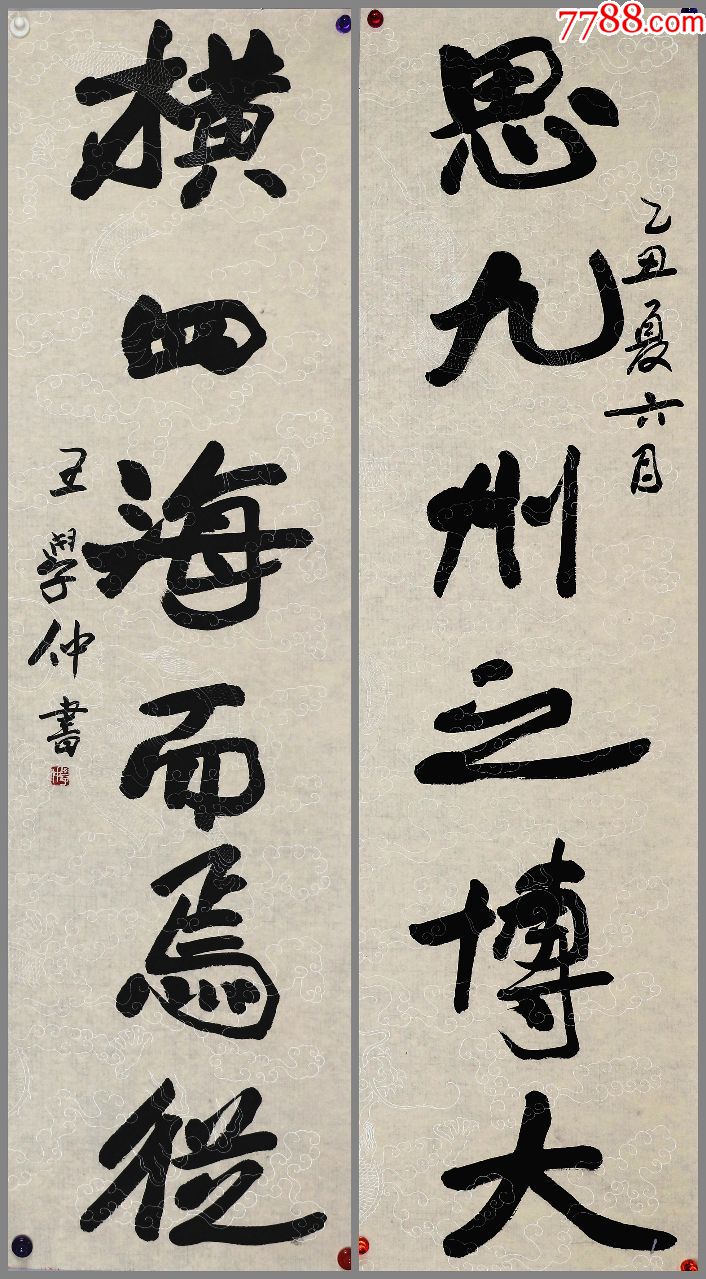 7788.com
乙丑夏六月
思九州之博大
橫四海而焉從
王學仲書